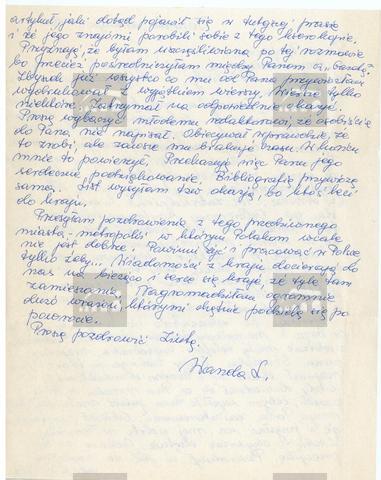 artykuł, jaki dotąd pojawił się w tutejszej prasie
i że jego znajomi porobili sobie z tego kserokopie.
Przyznaję, że byłam usatysfakcjonowana po tej rozmowie
bo przecież pośredniczyłam między Panem a
Zbyszek już wszystko co mu od Pana przywiozłam
wydrukował z wyjątkiem wierszy. Wiersze tylko
niektóre. Zatrzymał na odpowiednie okazje.
Proszę wybaczyć młodemu redaktorowi, że osobiście
do Pana nie napisał. Obiecywał wprawdzie, że
to zrobi, ale zawsze mu brakuje czasu. W końcu
mnie to powierzył. Przekazuję więc Panu jego
serdeczne podziękowanie. Bibliografię przywiozę
sama. List wysyłam też okazją, bo ktoś leci
do kraju.
Przesyłam pozdrowienia z tego przedziwnego
miasta-metropolii w którym Polakom wcale
nie jest dobrze. Powinni żyć i pracować w Polsce
tylko żeby... Wiadomości z kraju docierają do
nas na bieżąco i serce się kraje, że tyle tam
zamieszania. Nagromadziłam ogromnie
dużo wrażeń, którymi chętnie podzielę się po
powrocie.
Proszę pozdrowić
Wanda L.